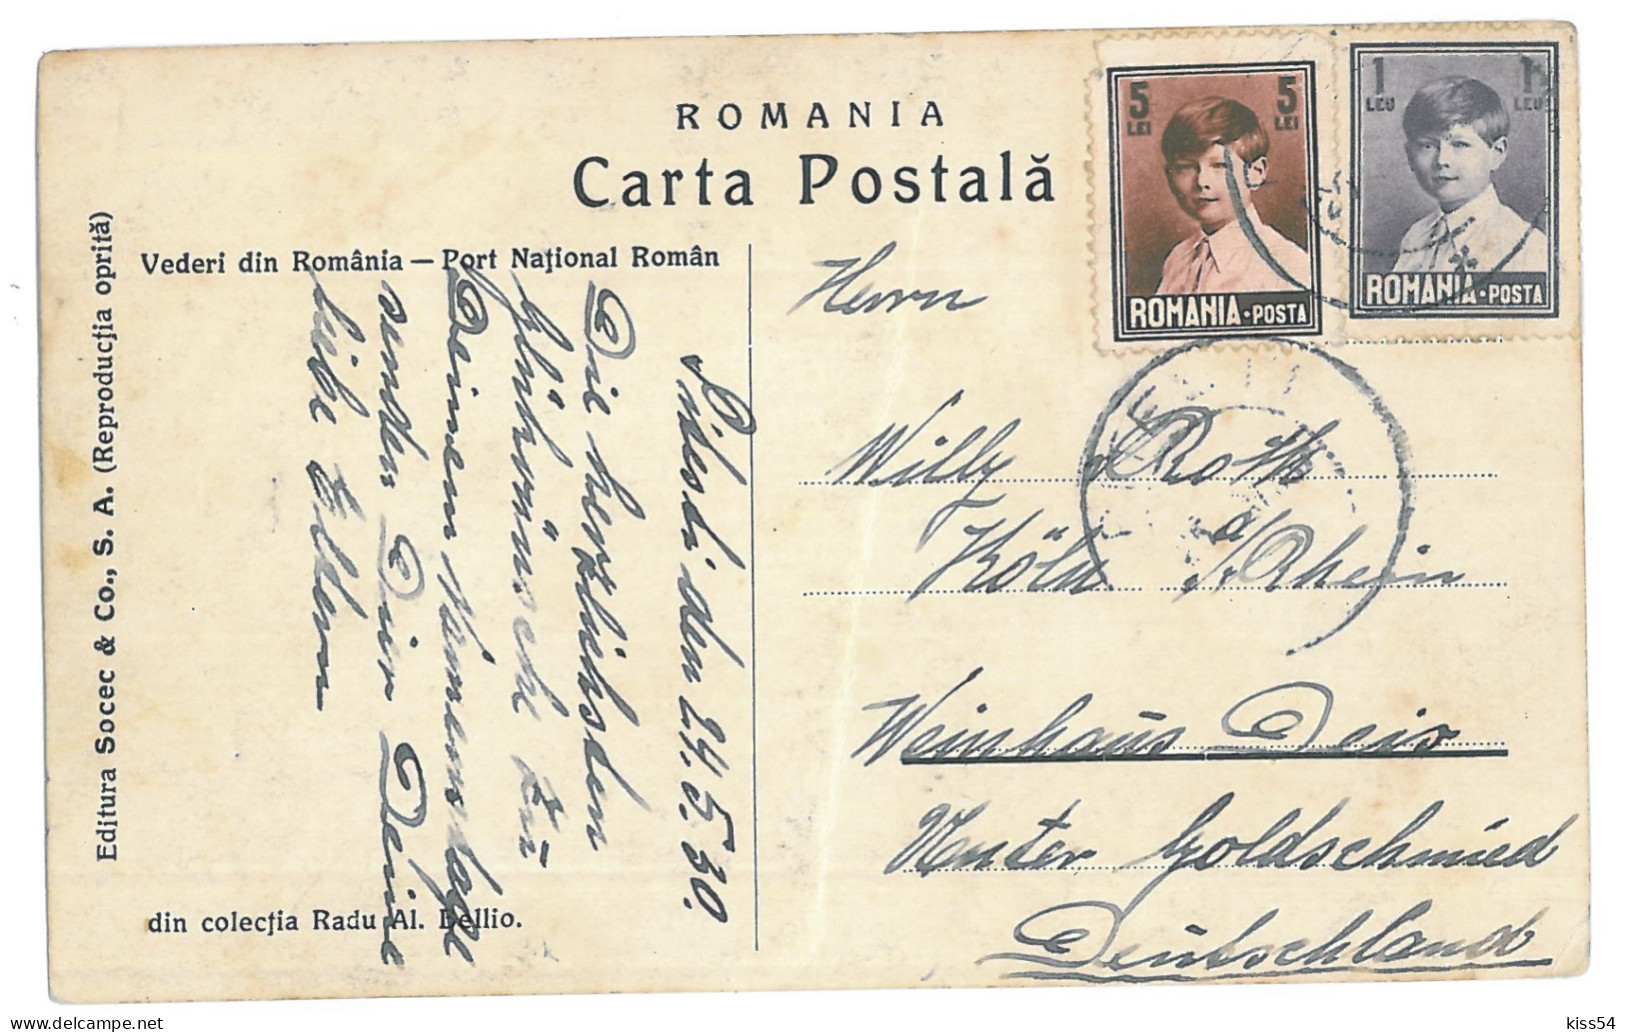 ROMANIA
Carta Postală
Vederi din România — Port Național Român
Editura Socec & Co., S. A. (Reproducția oprită)
din colecția Radu Al. Bellio.
5 LEI 5 LEI
ROMANIA·POSTA
1 LEU 1 LEU
ROMANIA·POSTA
den 24.5.30.
Die herzlichsten
Glückwünsche zu
Deinem Namenstage
senden Dir Deine
liebe Eltern
Herrn
Willy Roth
Köln a/Rhein
Weinhaus Deis
Unter Goldschmied
Deutschland
delcampe.net
kiss54